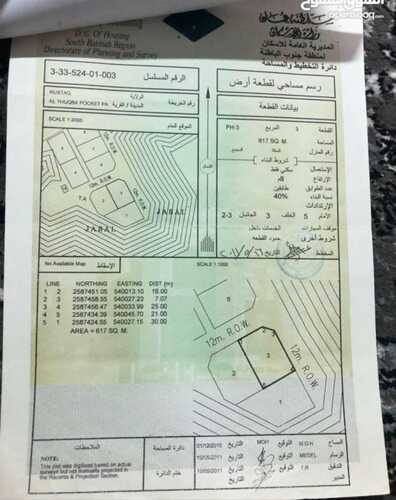 السوق المفتوح
D.G. Of Housing
South Batinah Region
Directorate of Planning and Survey
المديرية العامة للاسكان
لمنطقة جنوب الباطنة
دائرة التخطيط والمساحة
3-33-524-01-003 الرقم المسلسل
رسم مساحي لقطعة أرض
RUSTAQ الولاية
AL THUQBH POCKET PA المدينة / القرية
رقم الخريطة
بيانات القطعة
SCALE 1:2000 الموقع العام
القطعة 3 المربع PH-3
المساحة 617 SQ. M.
رقم المنزل
شروط البناء
الإستعمال سكني فقط
الإرتفاع
عدد الطوابق طابقين
نسبة البناء 40%
الإرتدادات
الأمام 5 الخلف 3 الجانبان 2-3
موقف السيارات
شروط أخرى حدود القطعة
المخطط
JABAL
JABAL
الشمال
No Available Map الإسقاط
SCALE 1:1000
LINE NORTHING EASTING DIST (m)
1 2 2587451.05 540013.10 16.00
2 3 2587458.55 540027.23 7.07
3 4 2587456.47 540033.99 25.00
4 5 2587434.39 540045.70 21.00
5 1 2587424.55 540027.15 30.00
AREA = 617 SQ. M.
12m. R.O.W.
12m. R.O.W.
6
2
3
1
الملاحظات
This plot was digitised based on actual
surveys but not manually projected in
the Records & Projection Section.
دائرة المساحة
ختم الدائرة
المساح M.G.H التوقيع MOH التاريخ 01/12/2010
التوقيع التاريخ
المدير التوقيع التاريخ 10/05/2011